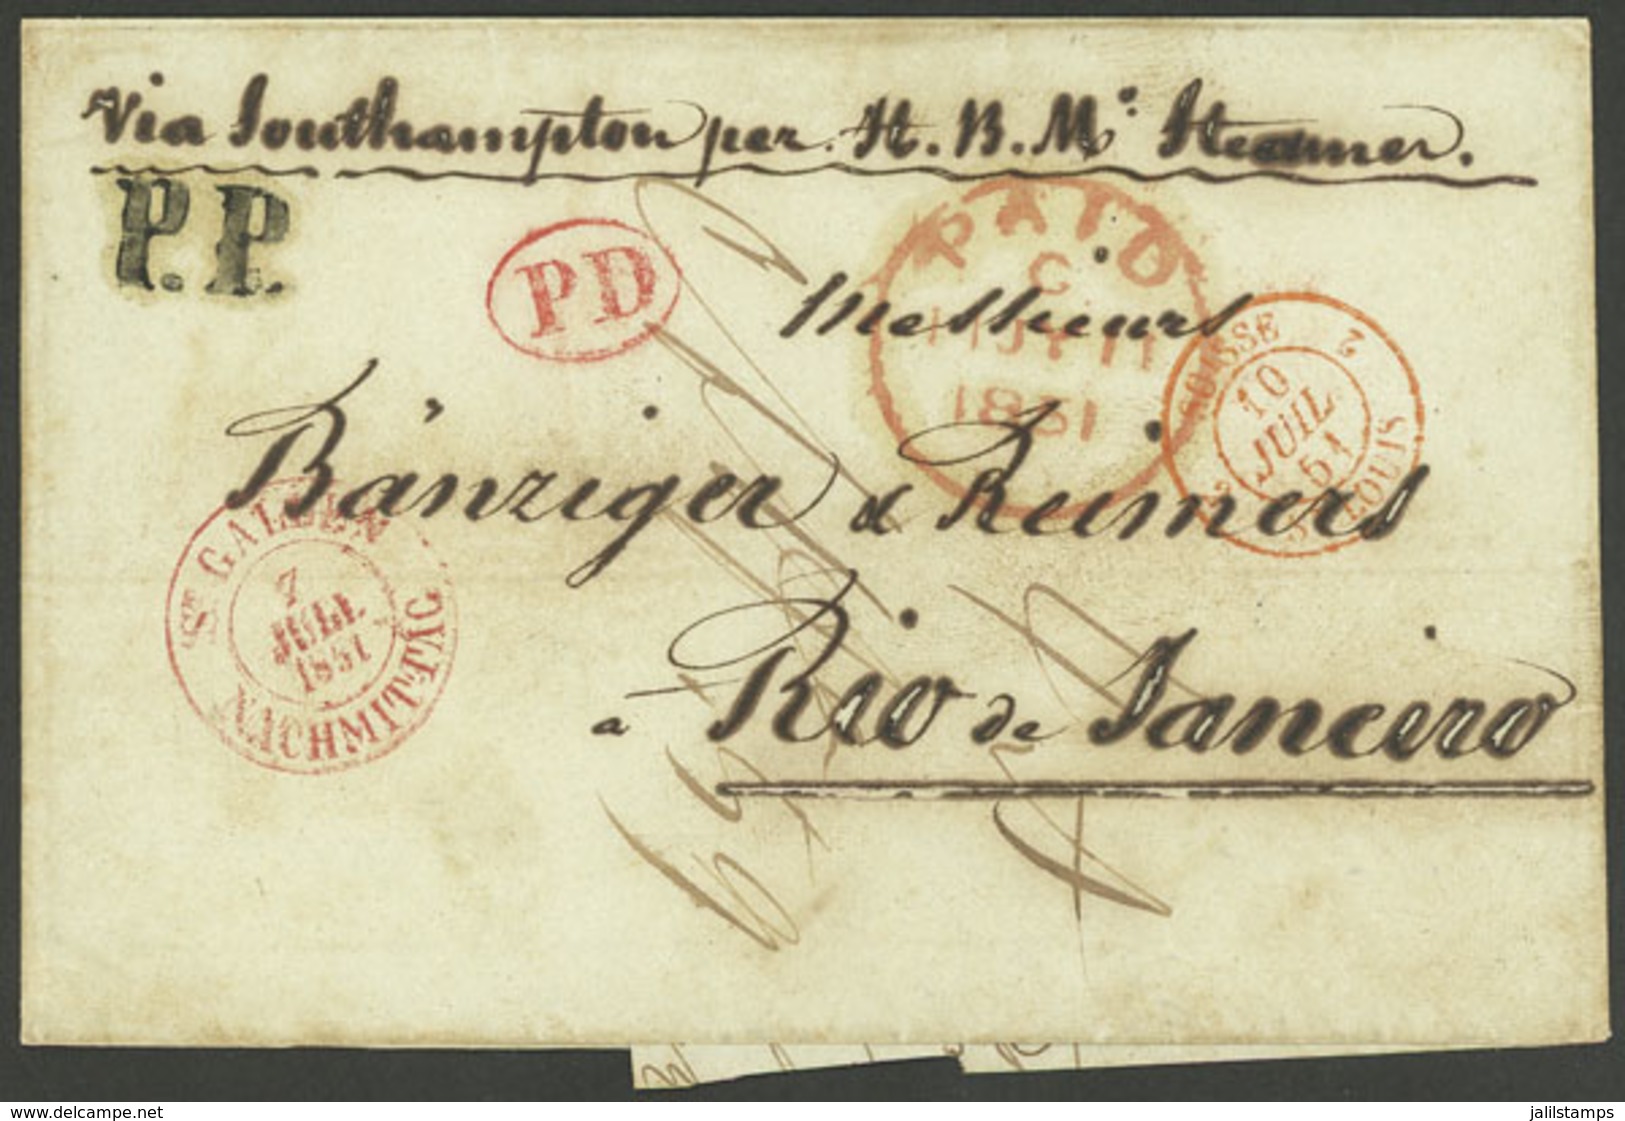 Via Southampton per H. B. M.s Steamer.
P.P.
PD
PAID
C
11 JY 11
1851
Messieurs
SUISSE 2 ST LOUIS 2
10
JUIL
51
Bänziger & Reimers
ST GALLEN
7
JULI
1851
NACHMITTAG
à Rio de Janeiro
delcampe.net
jalilstamps